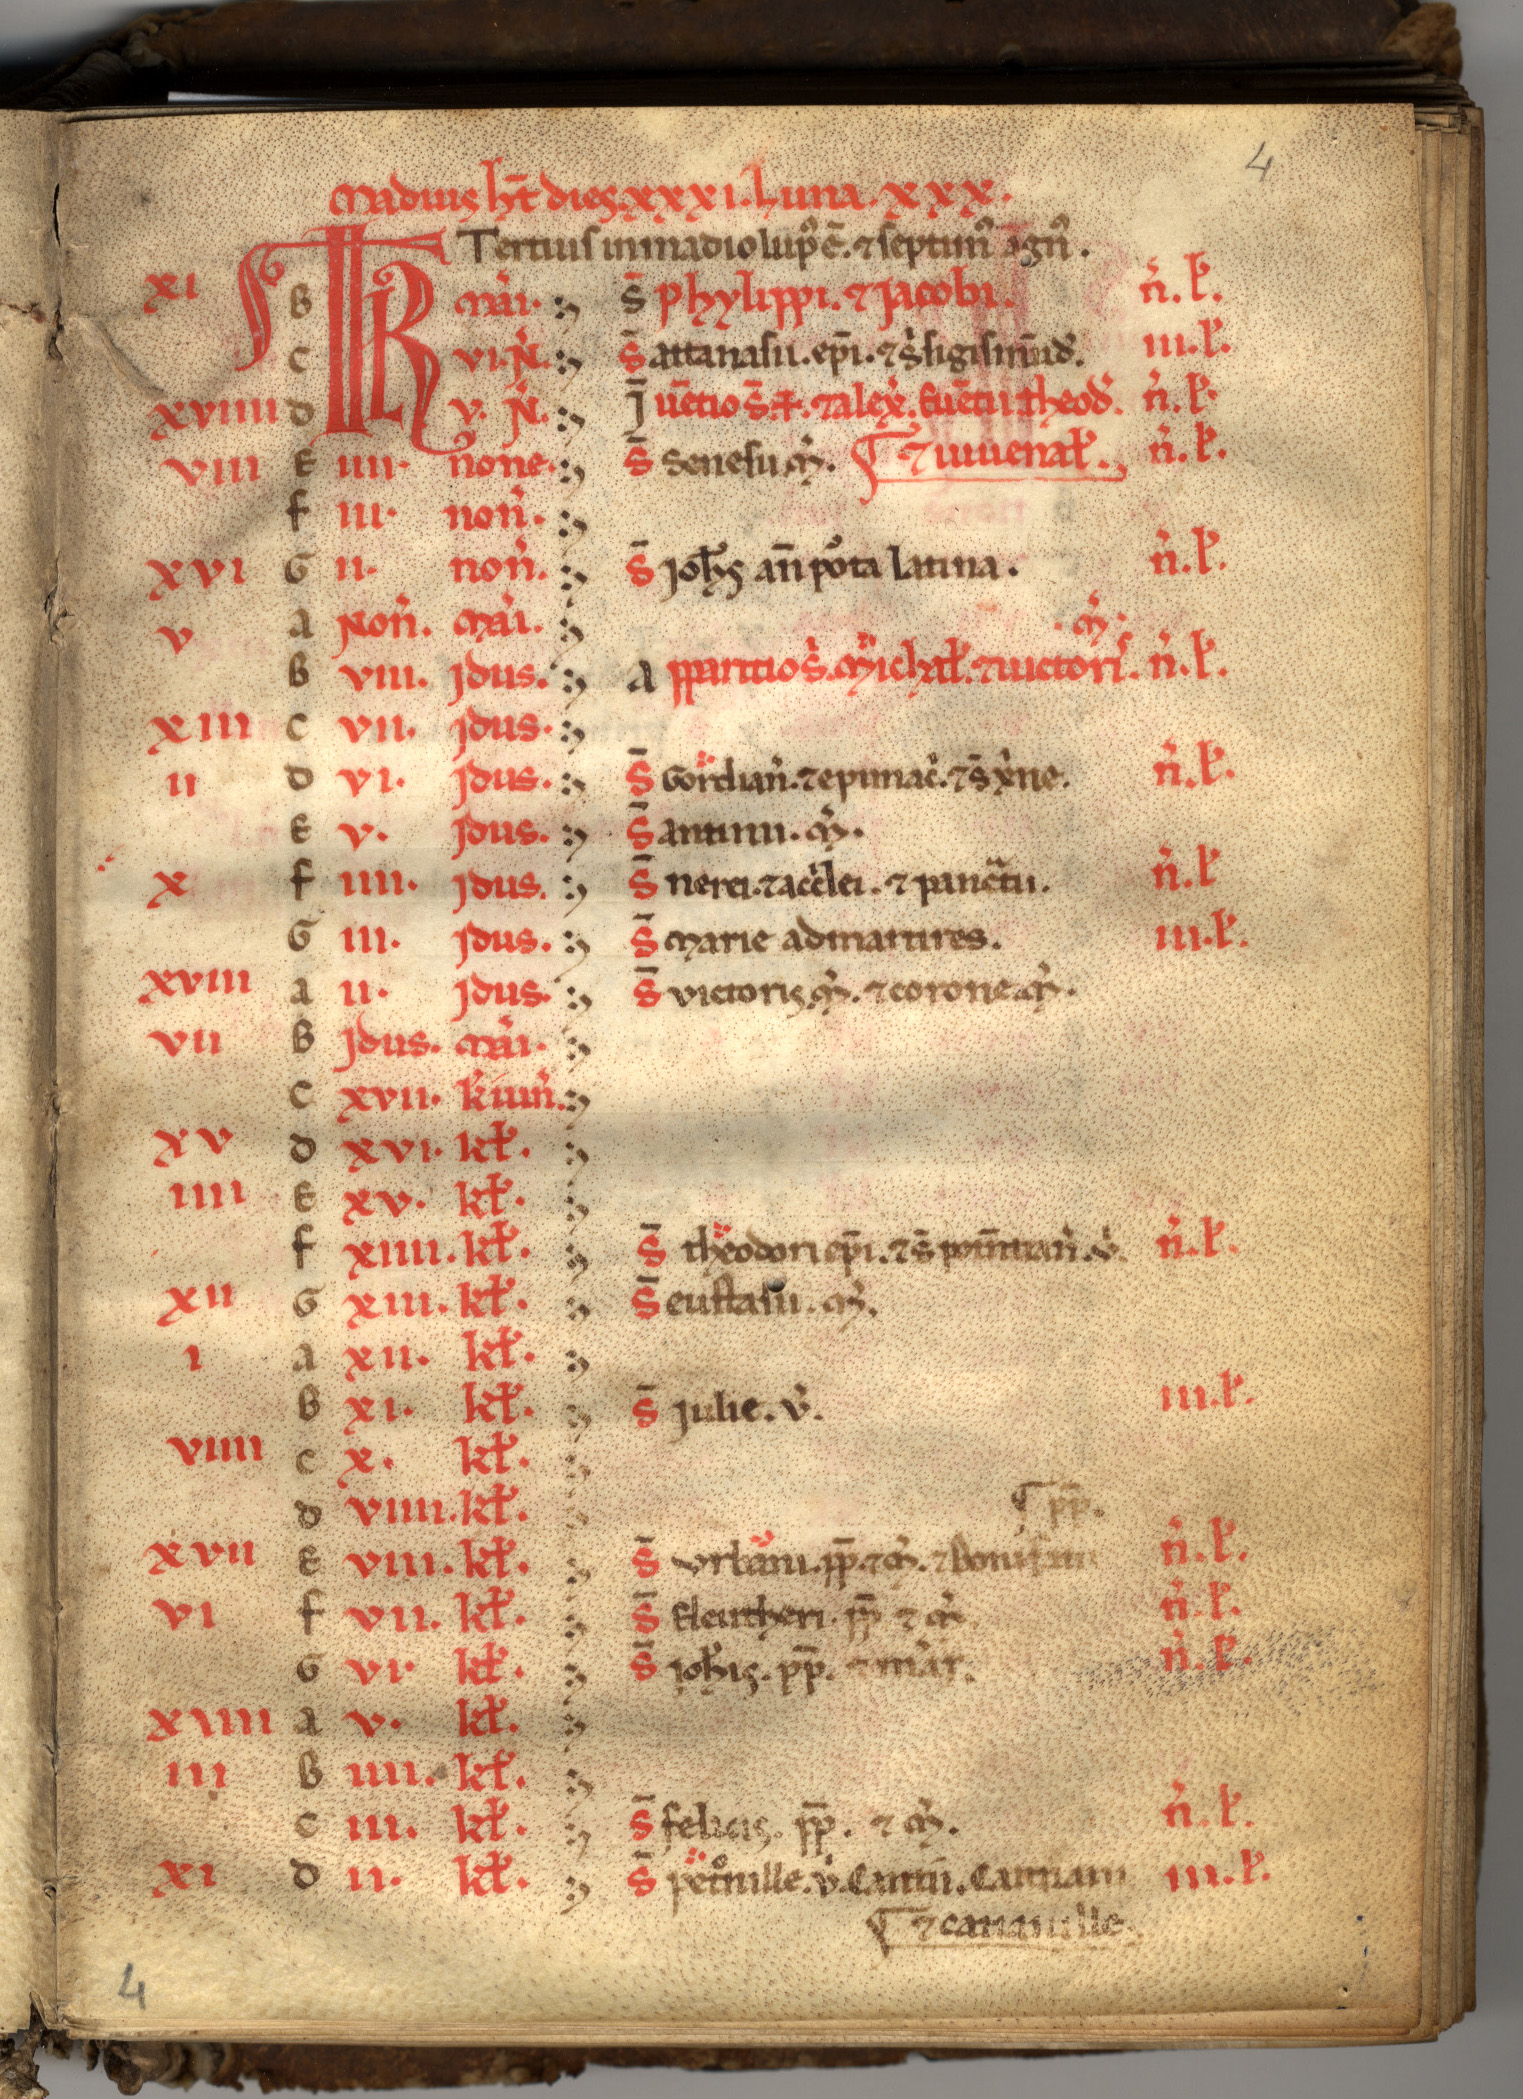 4
Madius ht dies. xxxi. Luna. xxx.
Tertius in madio lup' ē. ⁊ septim' āgn'.
xi B KL Mai. S Phylippi. ⁊ Jacobi. n. k.
c vi. N. S attanasii. epi. ⁊ s sigismūd. iii. k.
xviiii d v. N. Iuētio S ✝. ⁊ alex. Euētii theod. n. k.
viii E iiii. none. S Senesii m. ⁊ iuuenal. n. k.
f iii. non.
xvi G ii. non. S Johis an porta Latina. n. k.
v a Non. Mai. m.
B viii. Idus. Apparitio s. Michael. ⁊ uictori. n. k.
xiii c vii. Idus.
ii d vi. Idus. S Gordian. ⁊ epimac. ⁊ s xne. n. k.
E v. Idus. S antimi. m.
x f iiii. Idus. S nerei. ⁊ acclei. ⁊ pancatii. n. k.
G iii. Idus. S Marie ad martires. iii. k.
xviii a ii. Idus. S victoris. m. ⁊ corone. m.
vii B Idus. Mai.
c xvii. k iun.
xv d xvi. kl.
iiii E xv. kl.
f xiiii. kl. S theodori epi. ⁊ s potētian. v. n. k.
xii G xiii. kl. S eustasii. m.
i a xii. kl.
B xi. kl. S Julie. v. iii. k.
viiii c x. kl.
d viiii. kl. pp.
xvii E viii. kl. S vrbani. pp. ⁊ m. ⁊ Bonifatii n. k.
vi f vii. kl. S Eleutheri. pp ⁊ m. n. k.
G vi. kl. S Johis. pp. ⁊ mar. n. k.
xviiii a v. kl.
iii B iiii. kl.
c iii. kl. S felicis. pp. ⁊ m. n. k.
xi d ii. kl. S petnille. v. Cantii. Cantiani iii. k.
⁊ cantianille.
4